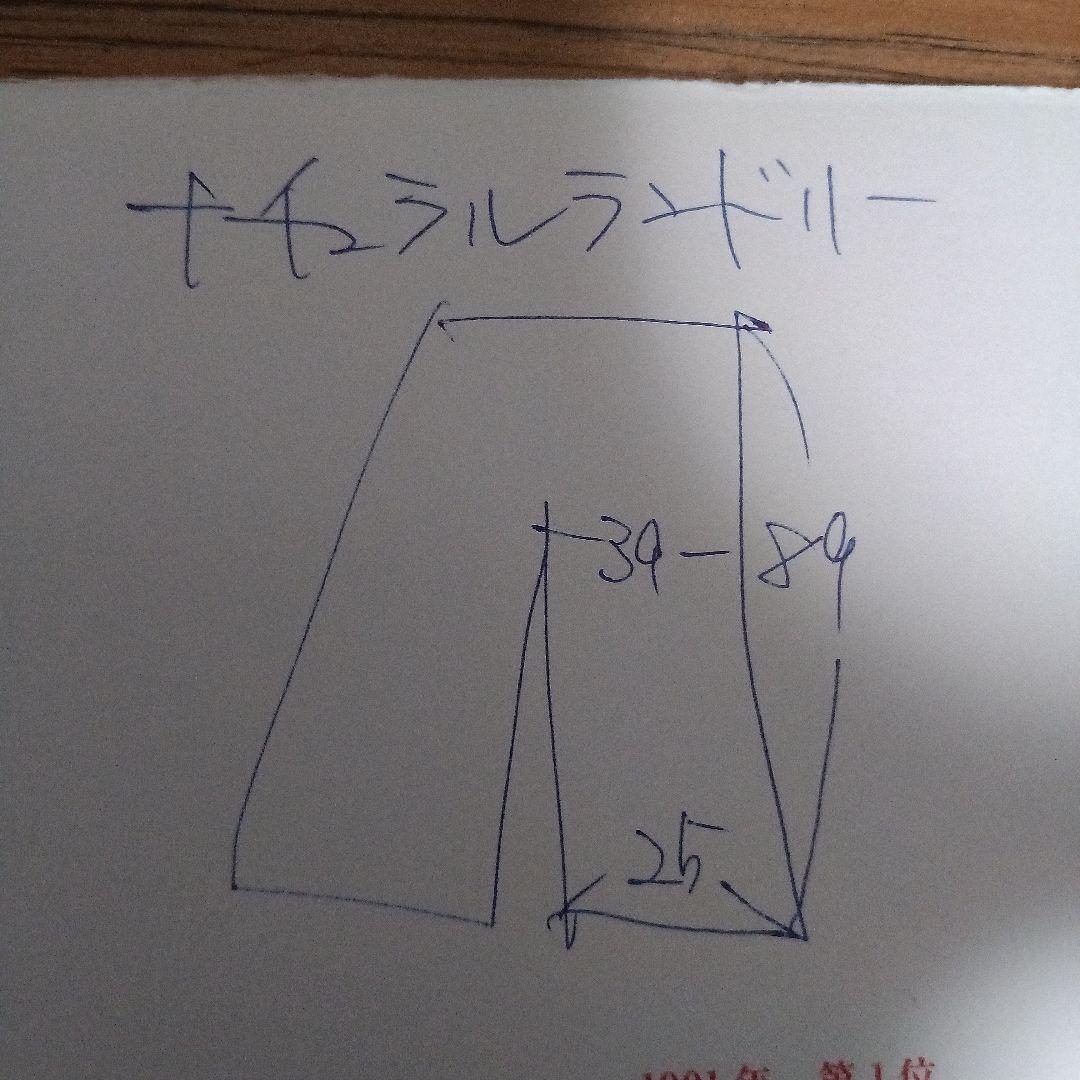 ナチュラルランドリー
39
89
25
1991年 第1位